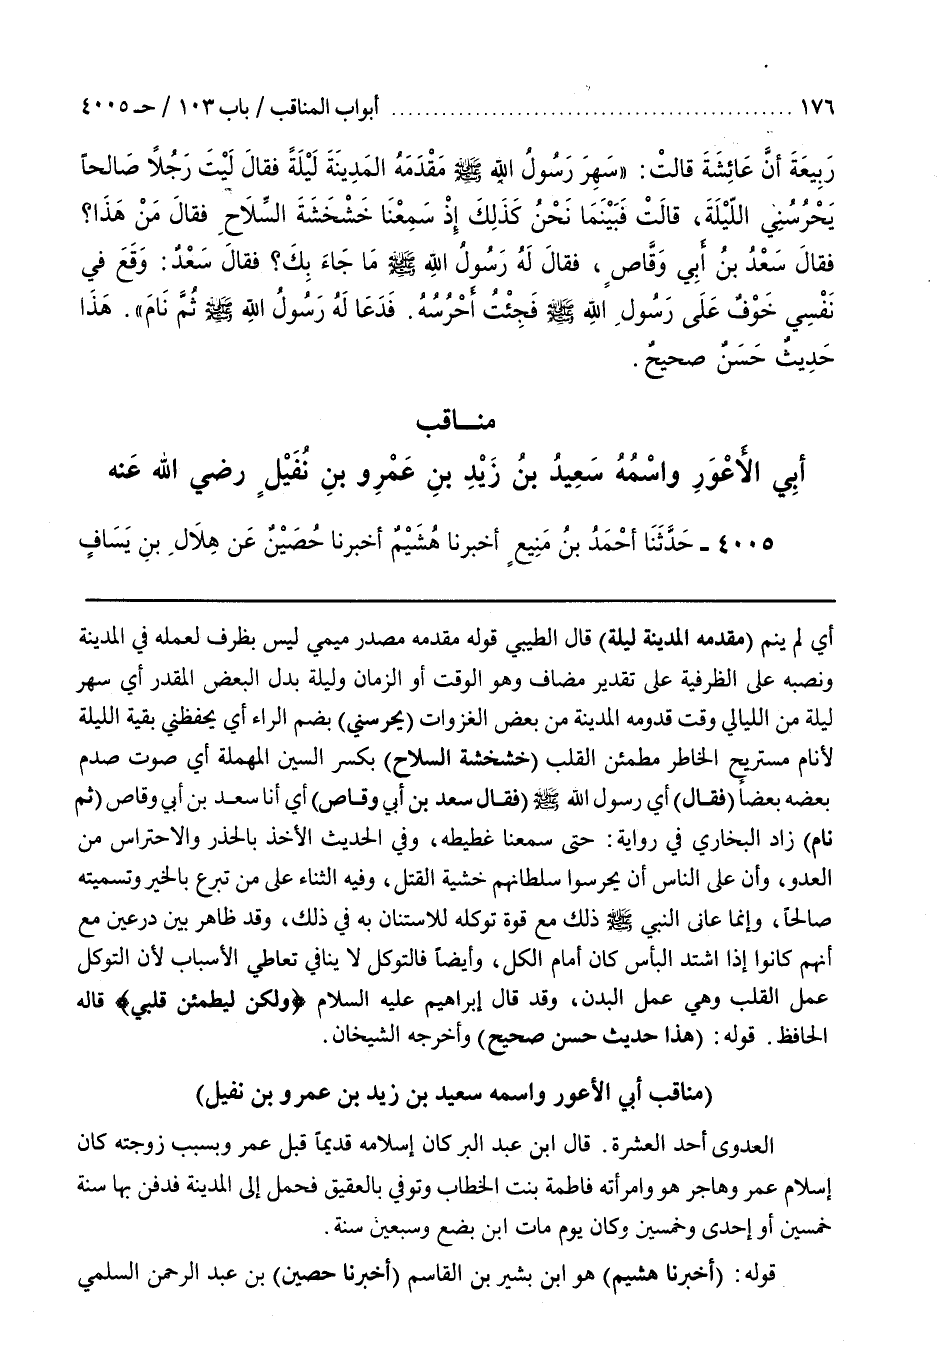 ١٧٦ ........................................ أبواب المناقب / باب ١٠٣ / حـ ٤٠٠٥
رَبِيعَةَ أنَّ عَائِشَةَ قالتْ: «سَهِرَ رَسُولُ اللهِ ﷺ مَقْدَمَهُ المَدِينَةَ لَيْلَةً فقالَ لَيْتَ رَجُلًا صَالحاً
يَحْرُسُنِي اللّيْلَةَ، قالَتْ فَبَيْنَمَا نَحْنُ كَذَلِكَ إذْ سَمِعْنَا خَشْخَشَةَ السِّلَاحِ فقالَ مَنْ هَذَا؟
فقالَ سَعْدُ بنُ أَبِي وَقَّاصٍ، فقالَ لَهُ رَسُولُ اللهِ ﷺ مَا جَاءَ بِكَ؟ فقالَ سَعْدٌ: وَقَعَ في
نَفْسِي خَوْفٌ عَلَى رَسُولِ اللهِ ﷺ فَجِئْتُ أحْرُسُهُ. فَدَعَا لَهُ رَسُولُ اللهِ ﷺ ثُمَّ نَامَ». هَذَا
حَدِيثٌ حَسَنٌ صحيحٌ.
منـــاقب
أبِي الأَعْوَرِ واسْمُهُ سَعِيدُ بنُ زَيْدِ بنِ عَمْرِو بنِ نُفَيْلٍ رضي الله عَنه
٤٠٠٥ ـ حَدَّثَنَا أحْمَدُ بنُ مَنِيعٍ أخبرنا هُشَيْمٌ أخبرنا حُصَيْنٌ عَن هِلَالِ بنِ يَسَافٍ
أي لم ينم (مقدمه المدينة ليلة) قال الطيبي قوله مقدمه مصدر ميمي ليس بظرف لعمله في المدينة
ونصبه على الظرفية على تقدير مضاف وهو الوقت أو الزمان وليلة بدل البعض المقدر أي سهر
ليلة من الليالي وقت قدومه المدينة من بعض الغزوات (يحرسني) بضم الراء أي يحفظني بقية الليلة
لأنام مستريح الخاطر مطمئن القلب (خشخشة السلاح) بكسر السين المهملة أي صوت صدم
بعضه بعضاً (فقال) أي رسول الله ﷺ (فقال سعد بن أبي وقاص) أي أنا سعد بن أبي وقاص (ثم
نام) زاد البخاري في رواية: حتى سمعنا غطيطه، وفي الحديث الأخذ بالحذر والاحتراس من
العدو، وأن على الناس أن يحرسوا سلطانهم خشية القتل، وفيه الثناء على من تبرع بالخير وتسميته
صالحاً، وإنما عانى النبي ﷺ ذلك مع قوة توكله للاستنان به في ذلك، وقد ظاهر بين درعين مع
أنهم كانوا إذا اشتد البأس كان أمام الكل، وأيضاً فالتوكل لا ينافي تعاطي الأسباب لأن التوكل
عمل القلب وهي عمل البدن، وقد قال إبراهيم عليه السلام ﴿ولكن ليطمئن قلبي﴾ قاله
الحافظ. قوله: (هذا حديث حسن صحيح) وأخرجه الشيخان.
(مناقب أبي الأعور واسمه سعيد بن زيد بن عمرو بن نفيل)
العدوى أحد العشرة. قال ابن عبد البر كان إسلامه قديماً قبل عمر وبسبب زوجته كان
إسلام عمر وهاجر هو وامرأته فاطمة بنت الخطاب وتوفي بالعقيق فحمل إلى المدينة فدفن بها سنة
خمسين أو إحدى وخمسين وكان يوم مات ابن بضع وسبعين سنة.
قوله: (أخبرنا هشيم) هو ابن بشير بن القاسم (أخبرنا حصين) بن عبد الرحمن السلمي